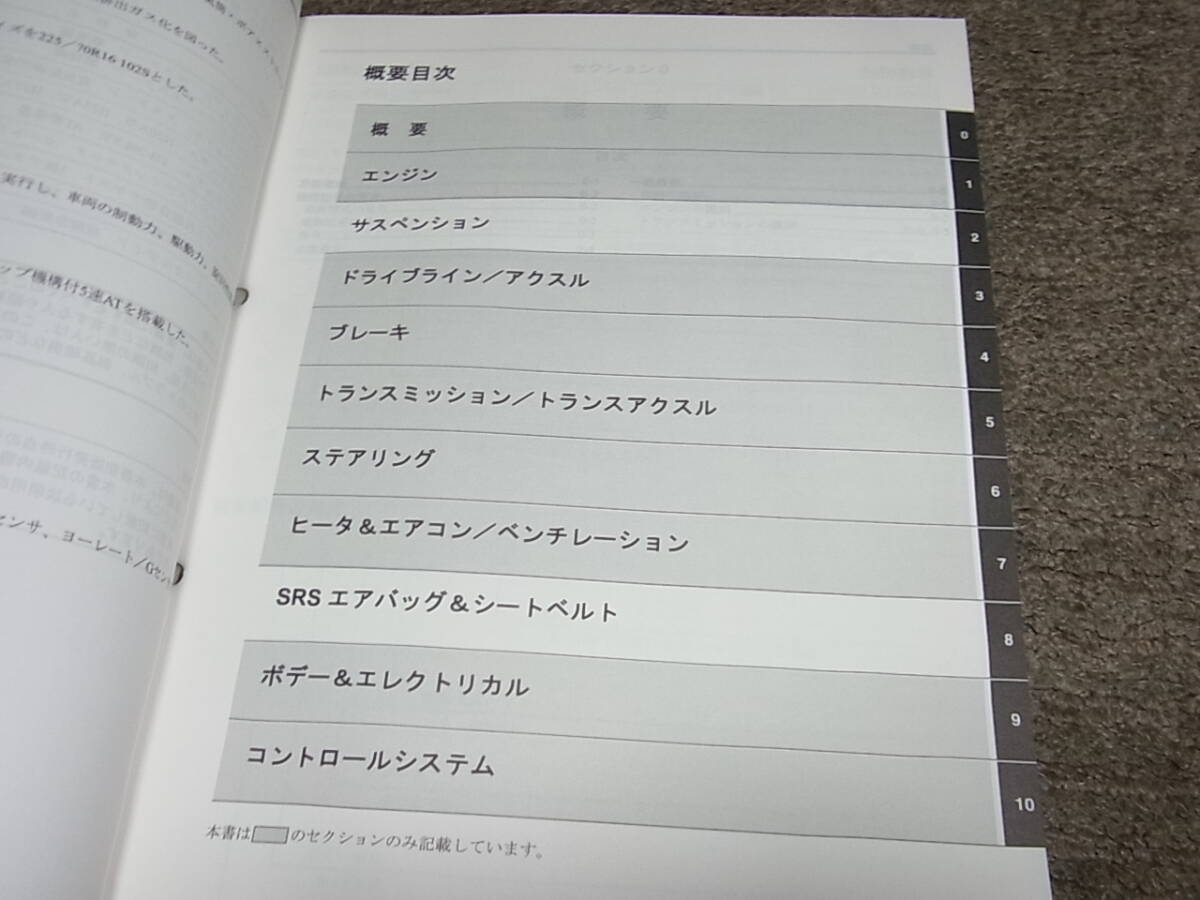 出ガス化を図った。
ズを225／70R16 102Sとした。
実行し、車両の制動力、駆動力、
ップ機構付5速ATを搭載した。
センサ、ヨーレート／Gセン
概要目次
概　要 0
エンジン 1
サスペンション 2
ドライブライン／アクスル 3
ブレーキ 4
トランスミッション／トランスアクスル 5
ステアリング 6
ヒータ＆エアコン／ベンチレーション 7
SRS エアバッグ＆シートベルト 8
ボデー＆エレクトリカル 9
コントロールシステム 10
本書は のセクションのみ記載しています。